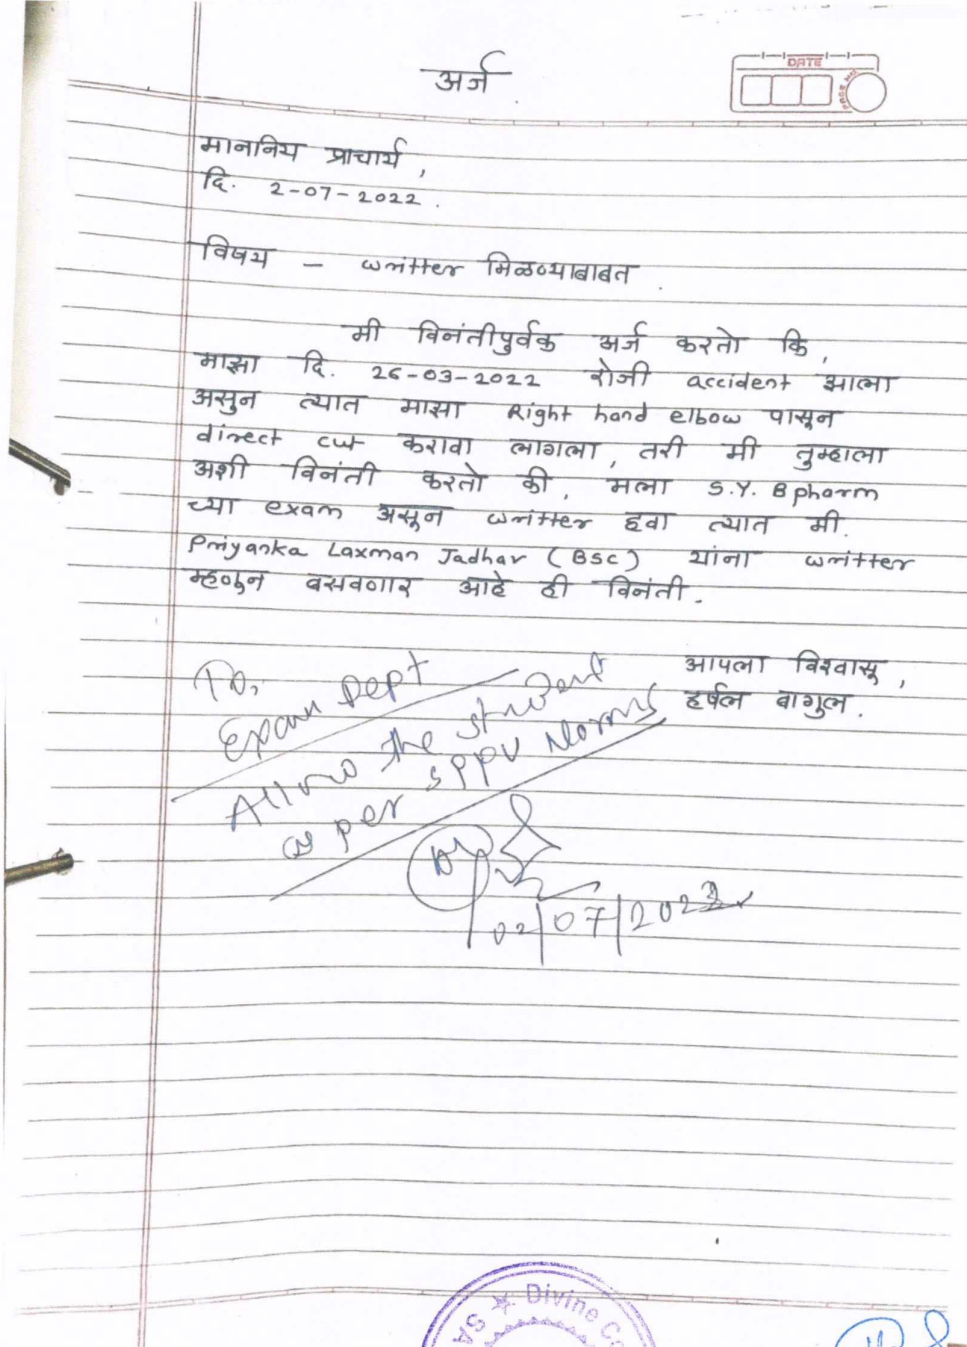 अर्ज
DATE
PAGE NO
माननिय प्राचार्य,
दि. 2-07-2022.
विषय - writter मिळण्याबाबत.
मी विनंतीपुर्वक अर्ज करतो कि,
माझा दि. 26-03-2022 रोजी accident झाला
असुन त्यात माझा Right hand elbow पासून
direct cut करावा लागला, तरी मी तुम्हाला
अशी विनंती करतो की, मला S.Y. Bpharm
च्या exam असून writter हवा त्यात मी.
Priyanka Laxman Jadhav (Bsc) यांना writter
म्हणून बसवणार आहे ही विनंती.
आपला विश्वासू,
हर्षल बागुल.
To,
Exam Dept
Allow the student
as per SPPU Norms
02/07/2022
Divine Co
SA